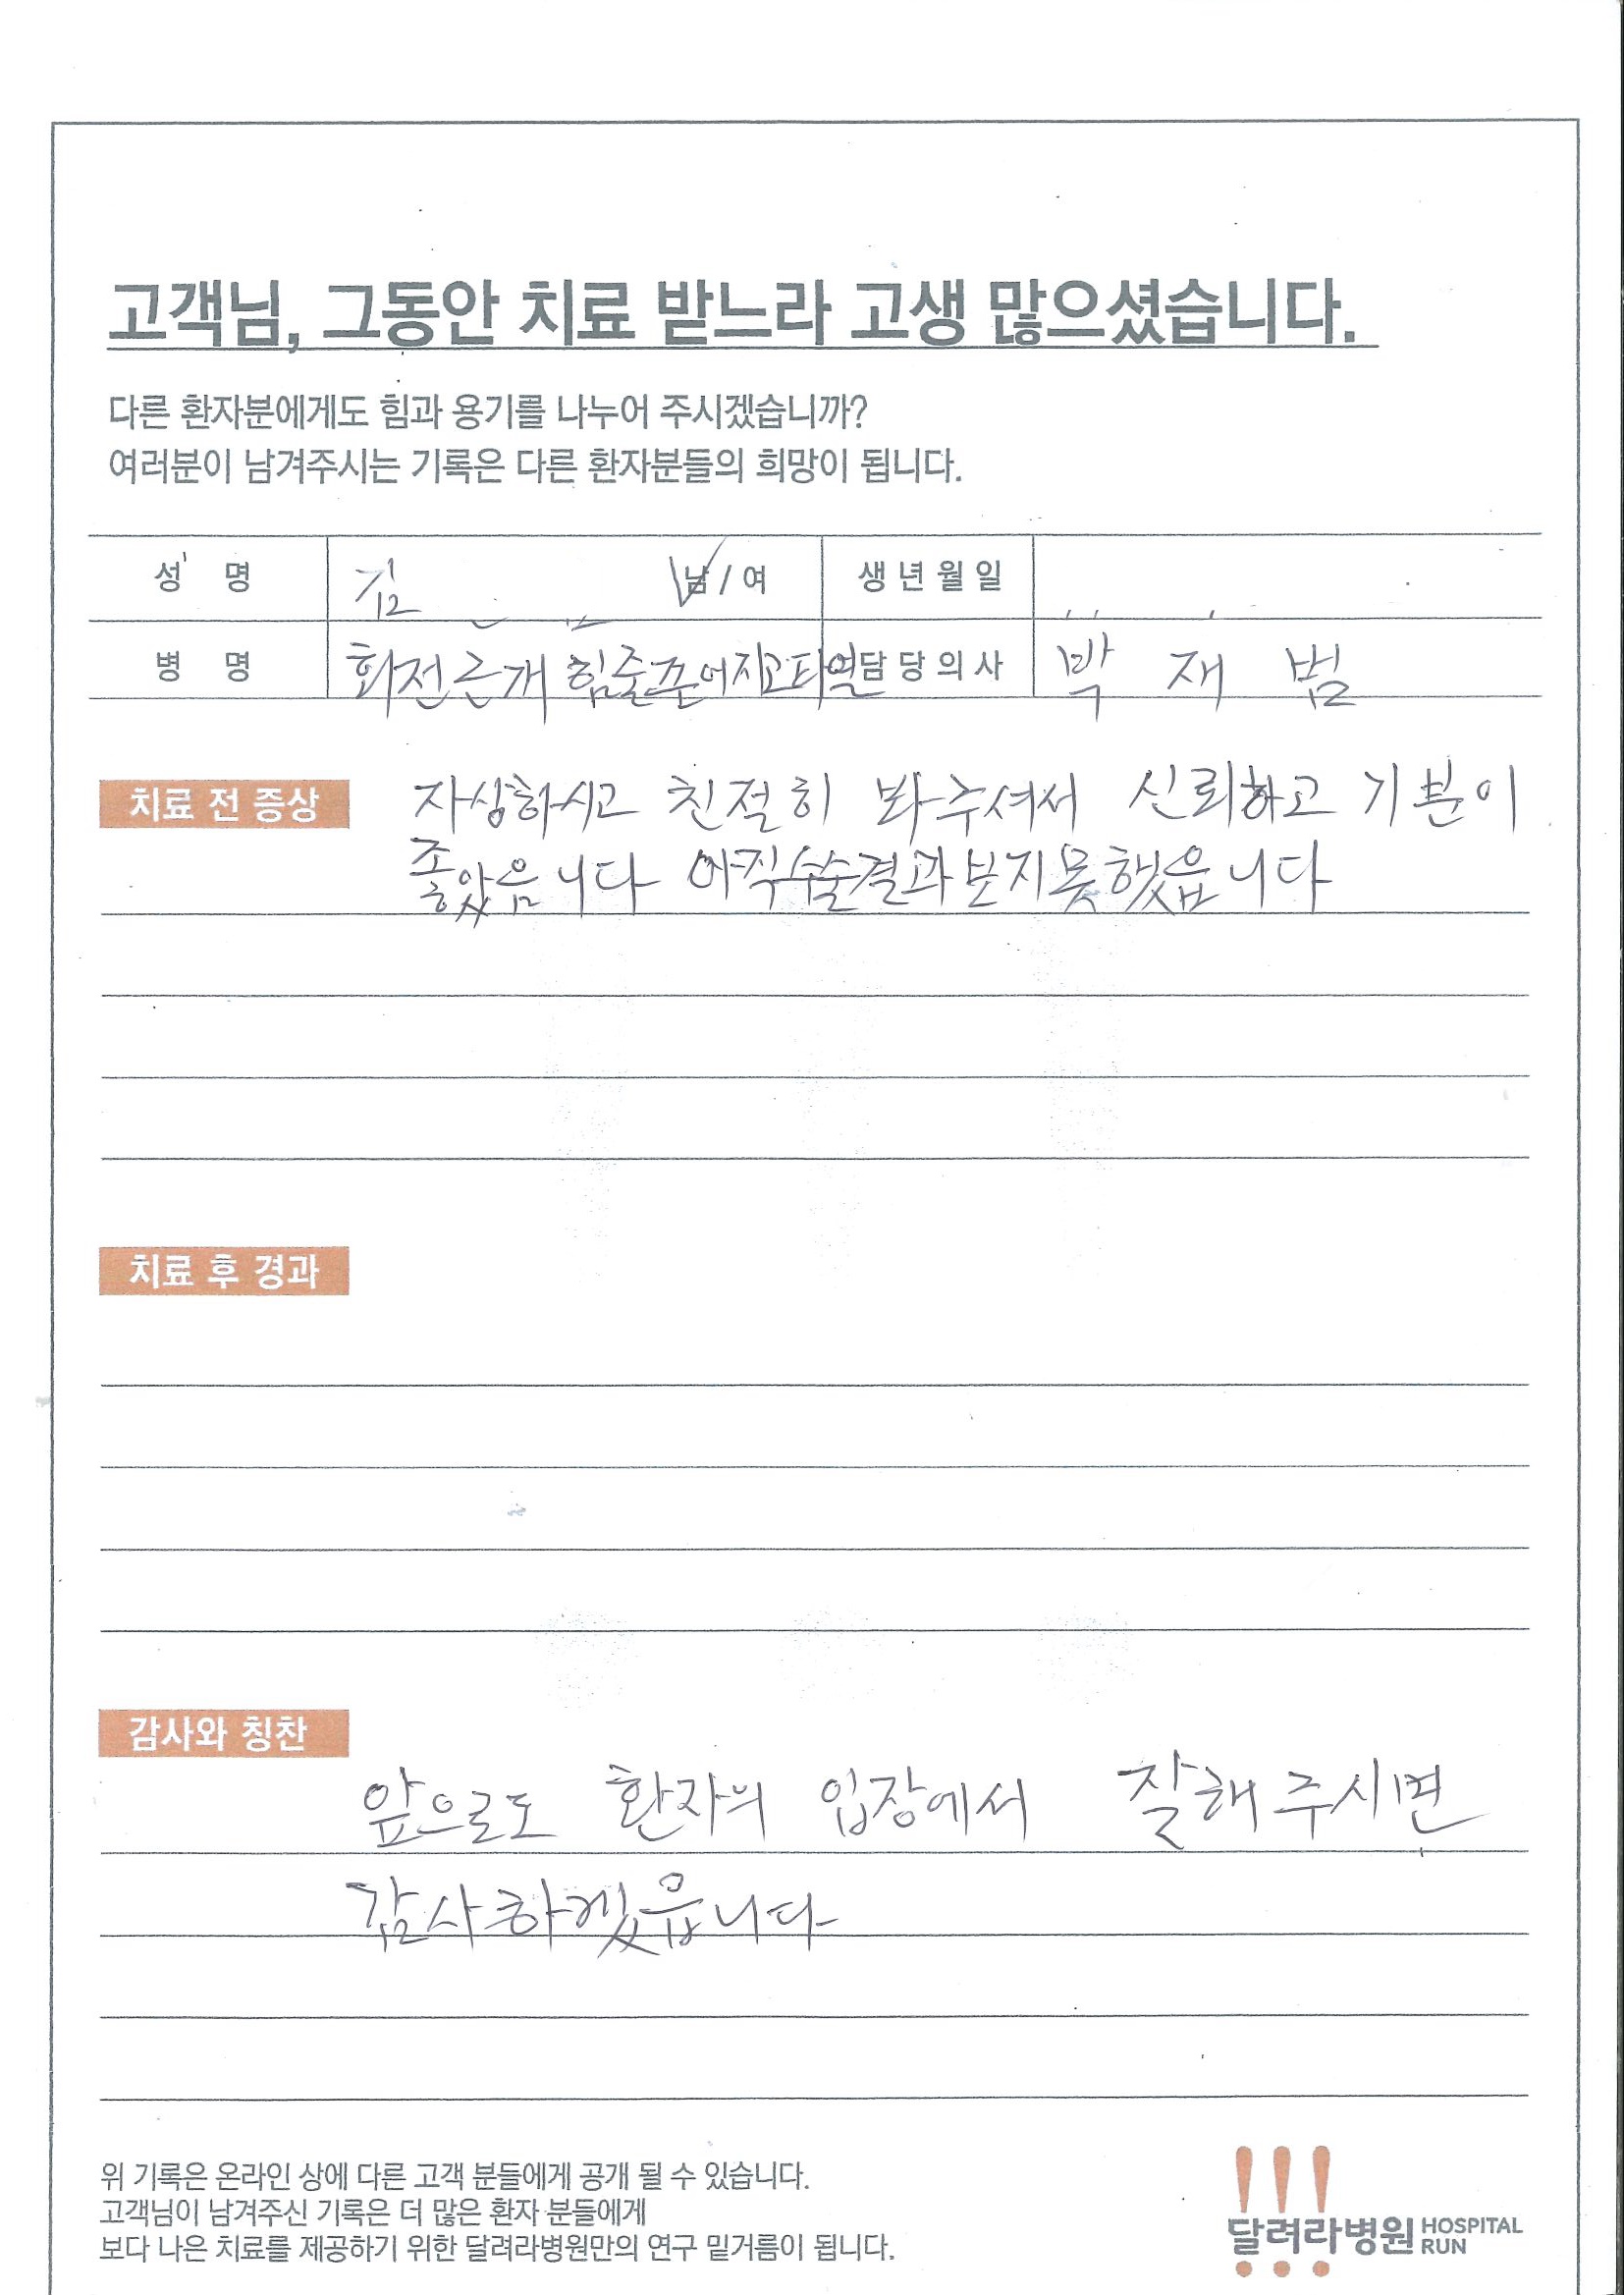 고객님, 그동안 치료 받느라 고생 많으셨습니다.
다른 환자분에게도 힘과 용기를 나누어 주시겠습니까?
여러분이 남겨주시는 기록은 다른 환자분들의 희망이 됩니다.
성 명 김 남 / 여 생년월일
병 명 회전근개 힘줄 어지고파열 담당의사 박 재 범
치료 전 증상 자상하시고 친절히 봐주셔서 신뢰하고 기분이
좋았읍니다 아직수술결과보지못했읍니다
치료 후 경과
감사와 칭찬
앞으로도 환자의 입장에서 잘해주시면
감사하겠읍니다
위 기록은 온라인 상에 다른 고객 분들에게 공개 될 수 있습니다.
고객님이 남겨주신 기록은 더 많은 환자 분들에게
보다 나은 치료를 제공하기 위한 달려라병원만의 연구 밑거름이 됩니다.
달려라병원 HOSPITAL RUN